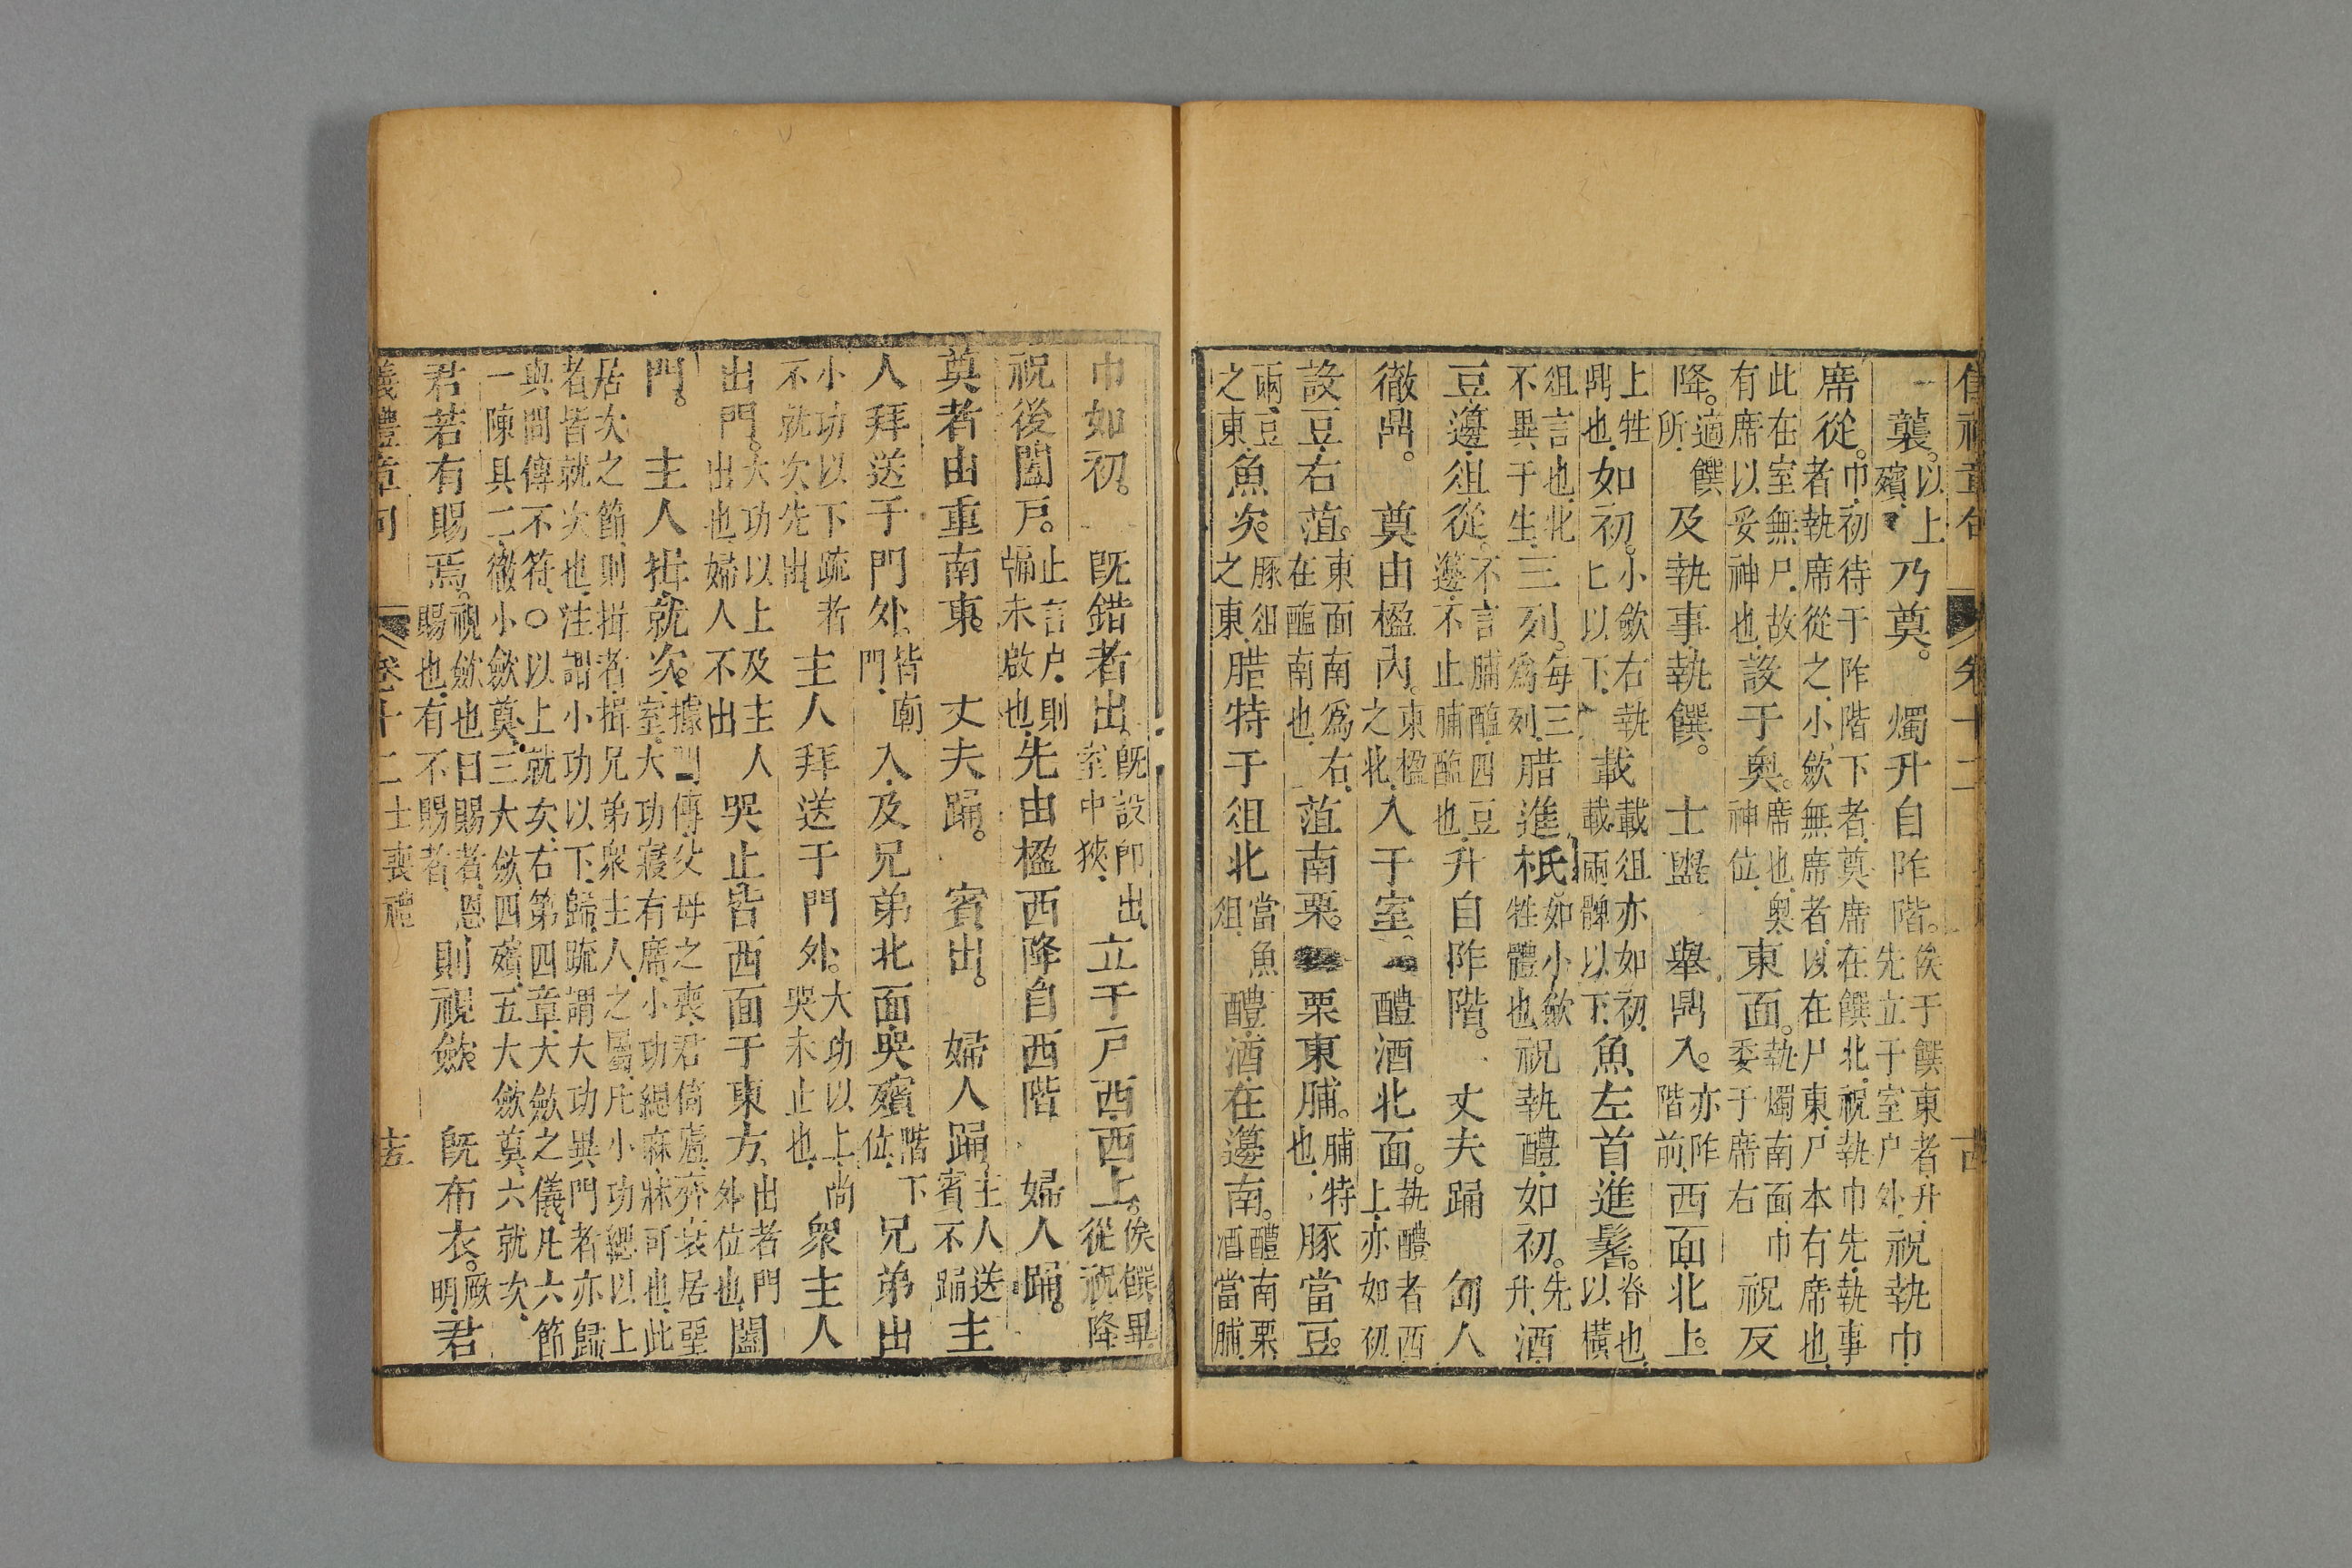 儀禮章句 卷十二 古
襲。以上殯、乃奠。燭升自阼階。俟于饌東者、升先立于室户外、祝執巾
席從。巾、初待于阼階下者、奠席在饌北、祝執巾先、執事者執席從之、小斂無席者、以在尸東、尸本有席也、
此在室無尸、故有席以妥神也、設于奧。席也、奧神位、東面。執燭南面、巾委于席右祝反
降。適饌所、及執事執饌。士盥舉鼎入。亦阼階前、西面北上。
上牲鼎也、如初。小斂右執匕以下、載載俎亦如初、載兩髀以下、魚左首、進鬐。脊也、以橫
俎言也、北不異于生、三列。每三爲列、腊進柢茹小斂牲體也、祝執醴如初。先升、酒、
豆、籩、俎從。不言脯醢、四豆籩不止脯醢也、升自阼階。丈夫踊甸人
徹鼎。奠由楹內。東楹之北、入于室、醴酒北面。執醴者西上、亦如初
設豆、右菹。東面南爲右、在醢南也、菹南栗。栗東脯。脯特也、豚當豆。
兩豆之東、魚次。豚俎之東、腊特于俎北當魚俎、醴、酒在籩南。醴南栗酒當脯、
巾如初。旣錯者出、旣設卽出、室中狹、立于户西、西上。俟饌畢從祝降
祝後闔户。止言户、則牖未啟也、先由楹西降自西階婦人踊。
奠者由重南東。丈夫踊。賓出。婦人踊、主人送賓不踊主
人拜送于門外、皆廟門、入、及兄弟北面哭殯階下位、兄弟出
小功以下疏者不就次、先出、主人拜送于門外。大功以上、尚哭未止也、眾主人
出門。大功以上及主人出也、婦人不出哭止、皆西面于東方、出者門外位也、闔
門。主人揖、就次。據閒傳、父母之喪、君倚廬、齊衰居堊室、大功寢有席、小功緦麻牀可也、此
居次之節、則揖者、揖兄弟衆主人、之屬、凡小功緦以上者皆就次也、注謂小功以下、歸、疏謂大功異門者亦歸
與閒傳不符、〇以上就次、右第四章、大斂之儀、凡六節一陳具、二徹小斂奠、三大斂、四殯、五大斂奠、六就次、
君若有賜焉。視斂也、曰賜者、恩賜也、有不賜者、則視斂。旣布衣。厥明、君
儀禮章句 卷十二士喪禮 圭